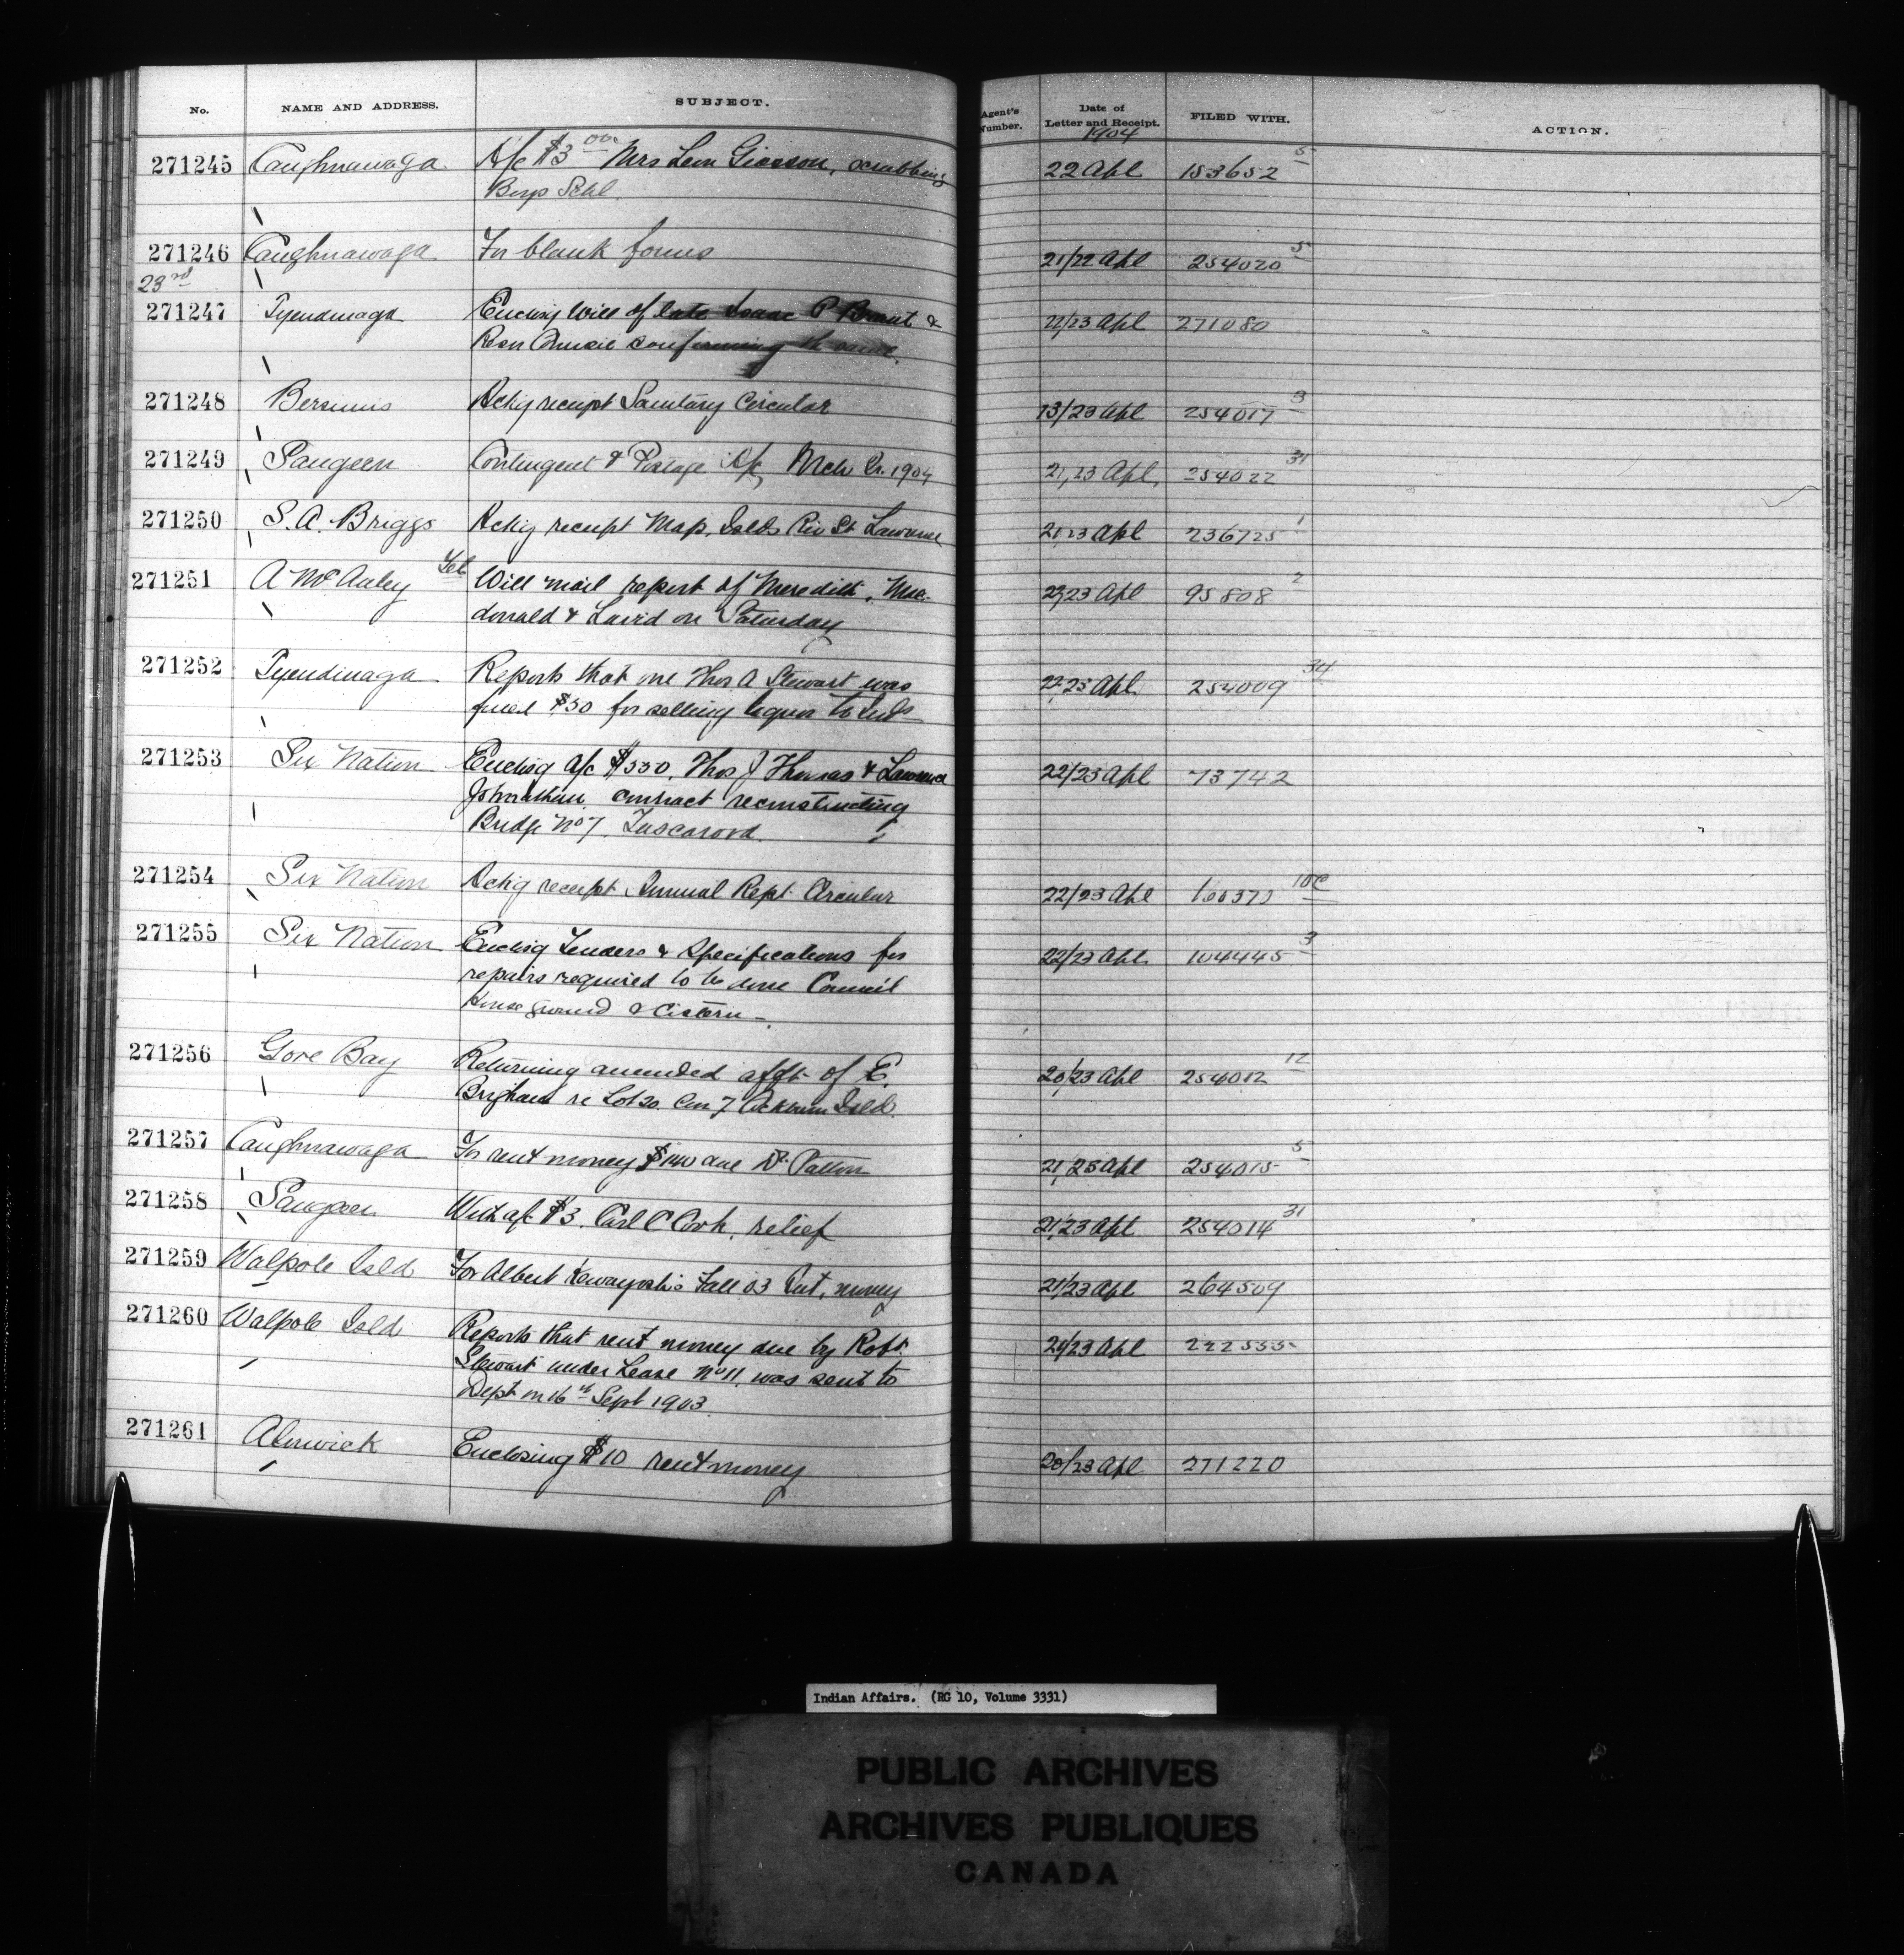 No. NAME AND ADDRESS. SUBJECT. Agent's Number. Date of Letter and Receipt. FILED WITH. ACTION.
1904
271245 Caughnawaga A/c $3.00 Mrs Leon Giasson, scrubbing 22 Apl 153652 5
Boys Schl.
271246 Caughnawaga For blank forms 21/22 Apl 254020 5
23rd
271247 Tyendinaga Enclosg Will of late Isaac P Brant & 22/23 Apl 271080
Resn Council confirming the same.
271248 Bersimis Ackg receipt Sanitary Circular 13/23 Apl 254017 3
271249 Saugeen Contingent & Postage A/c Mch Qr. 1904 21/23 Apl. 254022 31
271250 S. A. Briggs Ackg receipt Map, Islds Riv St. Lawrence 21/23 Apl 236725 1
271251 A McAuley Tel Will mail report of Meredith, Mac- 22/23 Apl 95808 2
donald & Laird on Saturday
271252 Tyendinaga Reports that one Thos A Stewart was 22/23 Apl 254009 34
fined $50 for selling liquor to Inds
271253 Six Nation Enclosg a/c $550, Thos J Thomas & Lawrence 22/23 Apl 73742
Johnathan, contract reconstructing
Bridge No 7, Tuscarora
271254 Six Nation Ackg receipt Annual Rept. Circular 22/23 Apl 10C
271255 Six Nation Enclosg Tenders & Specifications for 22/23 Apl 104445 3
repairs required to be done Council
House ground & Cistern -
271256 Gore Bay Returning amended affdt of E. 20/23 Apl 254012 12
Brigham re Lot 20. Con 7 Cockburn Isld.
271257 Caughnawaga For rent money $140 due Dr. Patton 21/23 Apl 254015 5
271258 Saugeen With a/c $3. Carl C Cork, relief 21/23 Apl 254014 31
271259 Walpole Isld For Albert Fall 03 Int. money 21/23 Apl 264509
271260 Walpole Isld Reports that rent money due by Robt. 21/23 Apl 222535
Stewart under Lease No 11, was sent to
Dept on 16th Sept 1903
271261 Alnwick Enclosing $10 rent money 20/23 Apl 271220
Indian Affairs. (RG 10, Volume 3331)
PUBLIC ARCHIVES
ARCHIVES PUBLIQUES
CANADA